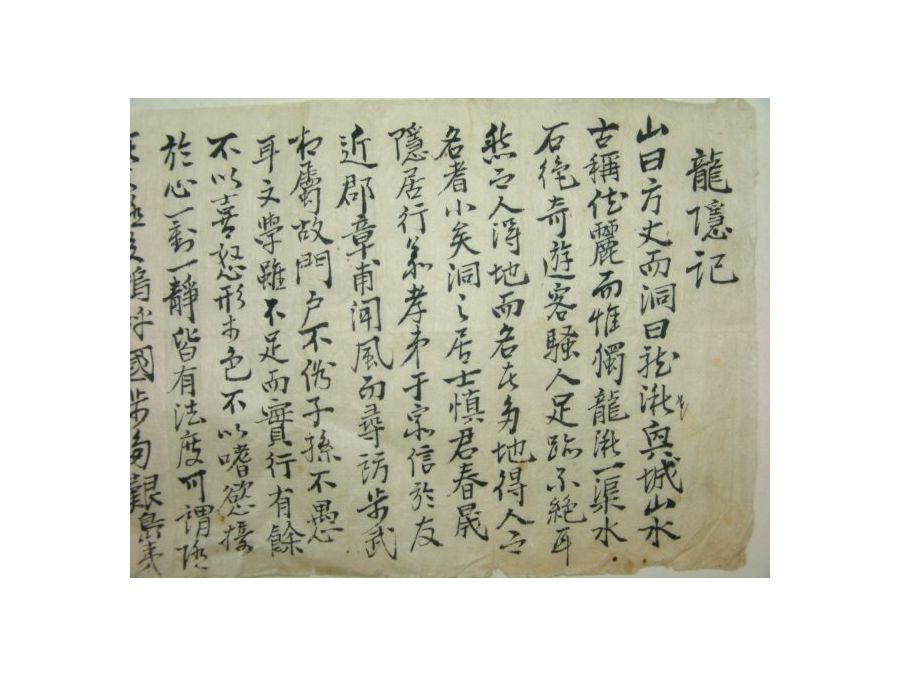 龍隱記
山曰方丈而洞曰龍湫與城山水
古稱佳麗而惟獨龍湫一渠水
石絶奇遊客騷人足跡不絶耳
然而人得地而名亦多地得人而
名者小矣洞之居士愼君春晟
隱居行義孝弟于宗信於友
近郡章甫聞風而尋訪步武
相屬故門戶不俗子孫不愚
耳文學雖不足而實行有餘
不以喜怒形於色不以嗜慾接
於心一動一靜皆有法度可謂隱
嗚呼國步多艱島夷